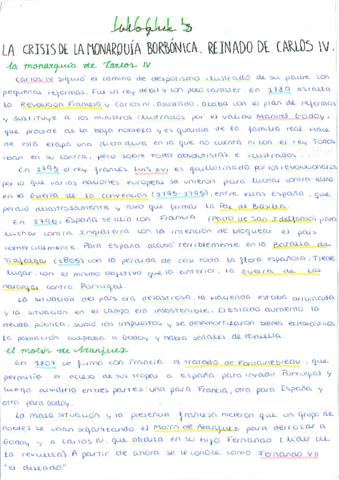 LA CRISIS DE LA MONARQUÍA BORBÓNICA. REINADO DE CARLOS IV.
la monarquía de Carlos IV
Carlos IV siguió el camino de despotismo ilustrado de su padre con
pequeñas reformas. Fue un rey débil y con poco carácter. En 1789 estalla
la Revolución Francesa y Carlos IV, asustado, acaba con el plan de reformas
y sustituye a los ministros ilustrados por el valido Manuel Godoy,
que procede de la baja nobleza y es guardia de la familia real. Hace
de esta etapa una dictadura en la que no cuenta ni con el rey. Todos
iban en su contra, pero sobre todo absolutistas e ilustrados.
En 1793 el rey francés Luis XVI es guillotinado por los revolucionarios
por lo que varias naciones europeas se unieron para luchar contra ellos
en la Guerra de la Convención (1793-1795), entre ellas España, que
perdió desastrosamente y tuvo que firmar la Paz de Basilea.
En 1796, España se alía con Francia (Pacto de San Ildefonso) para
luchar contra Inglaterra con la intención de bloquear el país
comercialmente. Para España acabó terriblemente en la Batalla de
Trafalgar (1805) con la pérdida de casi toda la flota española. Tiene
lugar, con el mismo objetivo que la anterior, la Guerra de las
naranjas contra Portugal.
La situación del país era desastrosa, la Hacienda estaba arruinada
y la situación en el campo era insostenible. El Estado aumentó la
deuda pública, subió los impuestos, y se desamortizaron bienes eclesiásticos.
La población culpaba a Godoy y había señales de revuelta.
el motín de Aranjuez
En 1807 se firma con Francia el Tratado de Fontainebleau, que
permitía el acceso de sus tropas a España para invadir Portugal y
luego dividirlo entres partes: una para Francia, otra para España y
otra para Godoy.
La mala situación y la presencia francesa hicieron que un grupo de
nobles se unan organizando el Motín de Aranjuez para derrocar a
Godoy y a Carlos IV, que abdica en su hijo Fernando (líder de
la revuelta). A partir de ahora se le conoce como Fernando VII
"el deseado"